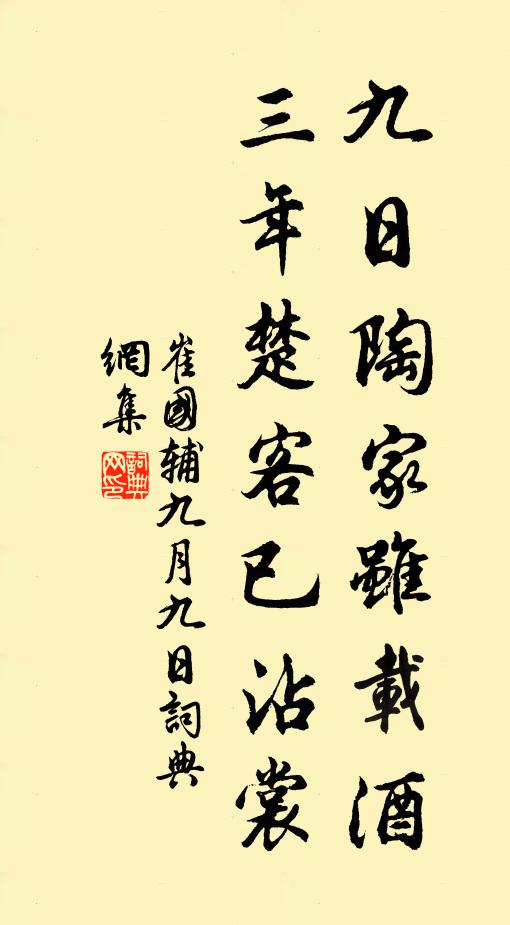 九日陶家雖載酒
三年楚客已沾裳
崔國輔九月九日詞典
網集
詞典網印